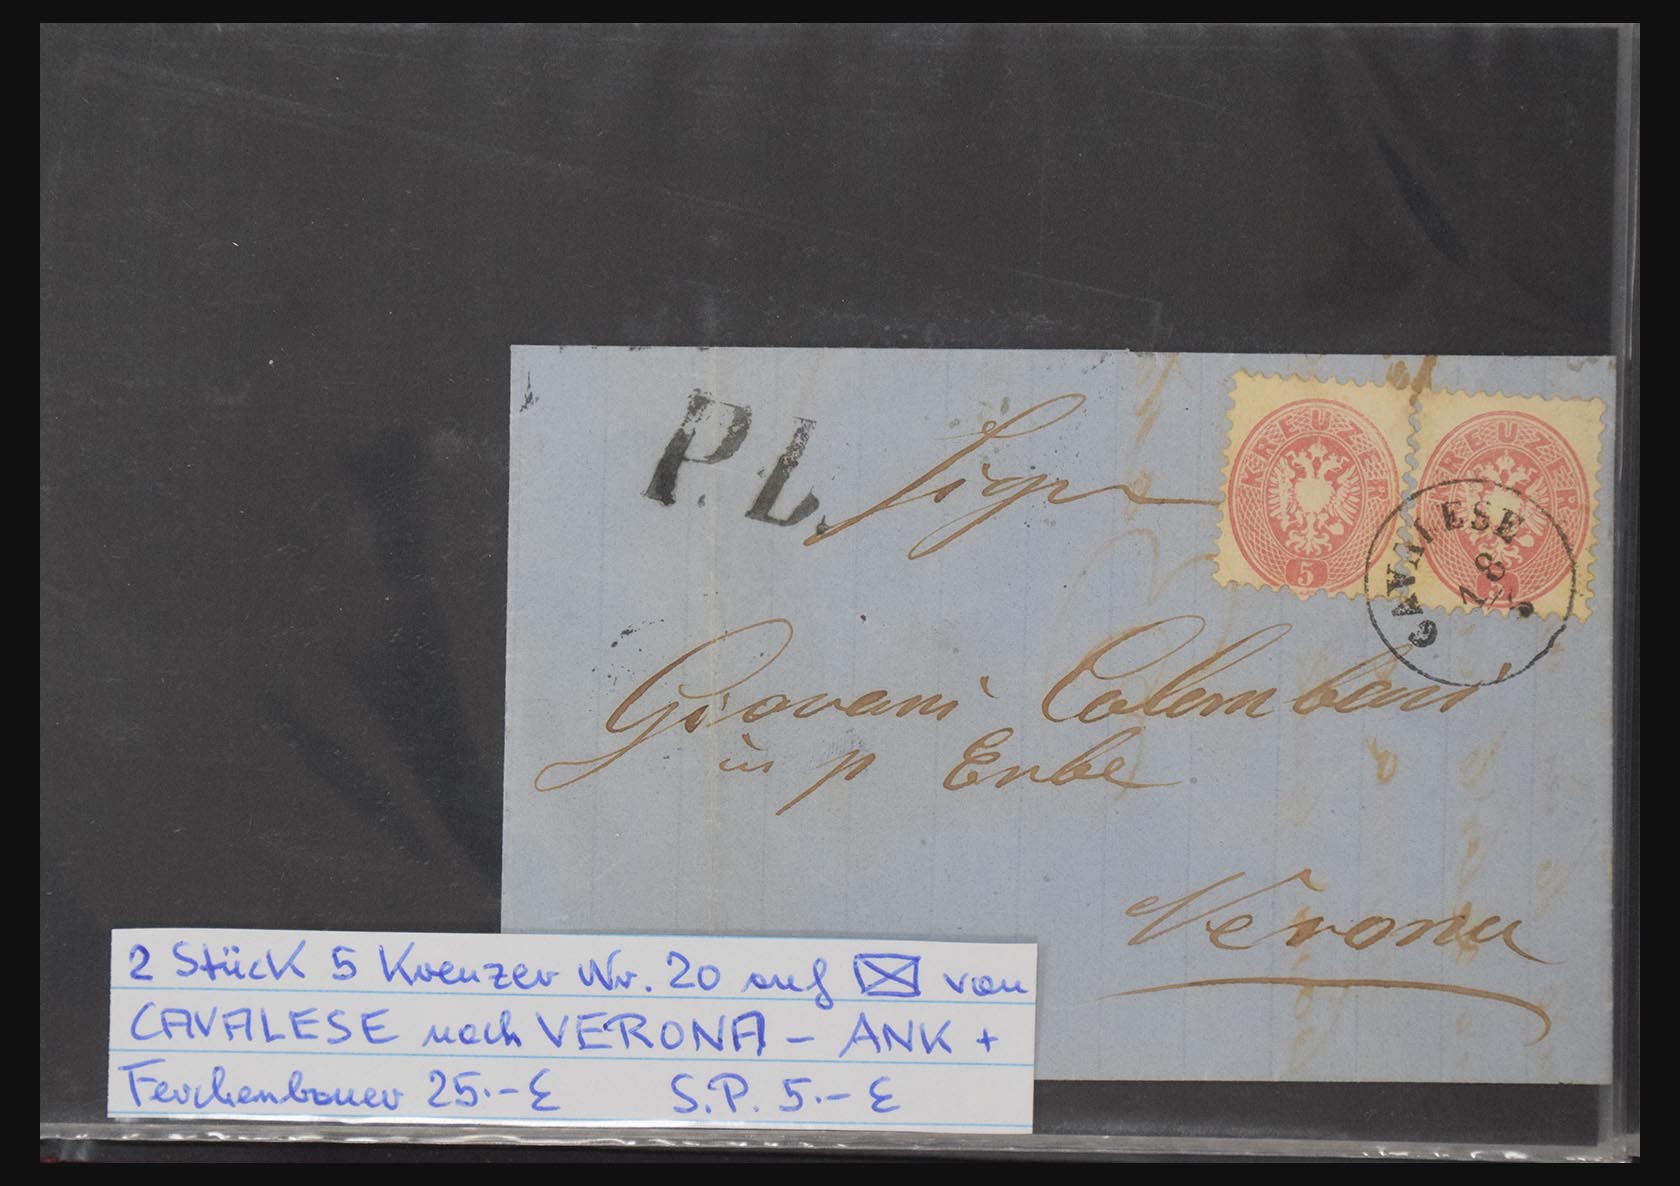 P.L. Sigr
KREUZER 5
KREUZER
CAVALESE
18
Giovani Colombari
in p Erbe
Verona
2 Stück 5 Kreuzer Nr. 20 auf von
CAVALESE nach VERONA – ANK +
Ferchenbauer 25.– € S.P. 5.– €